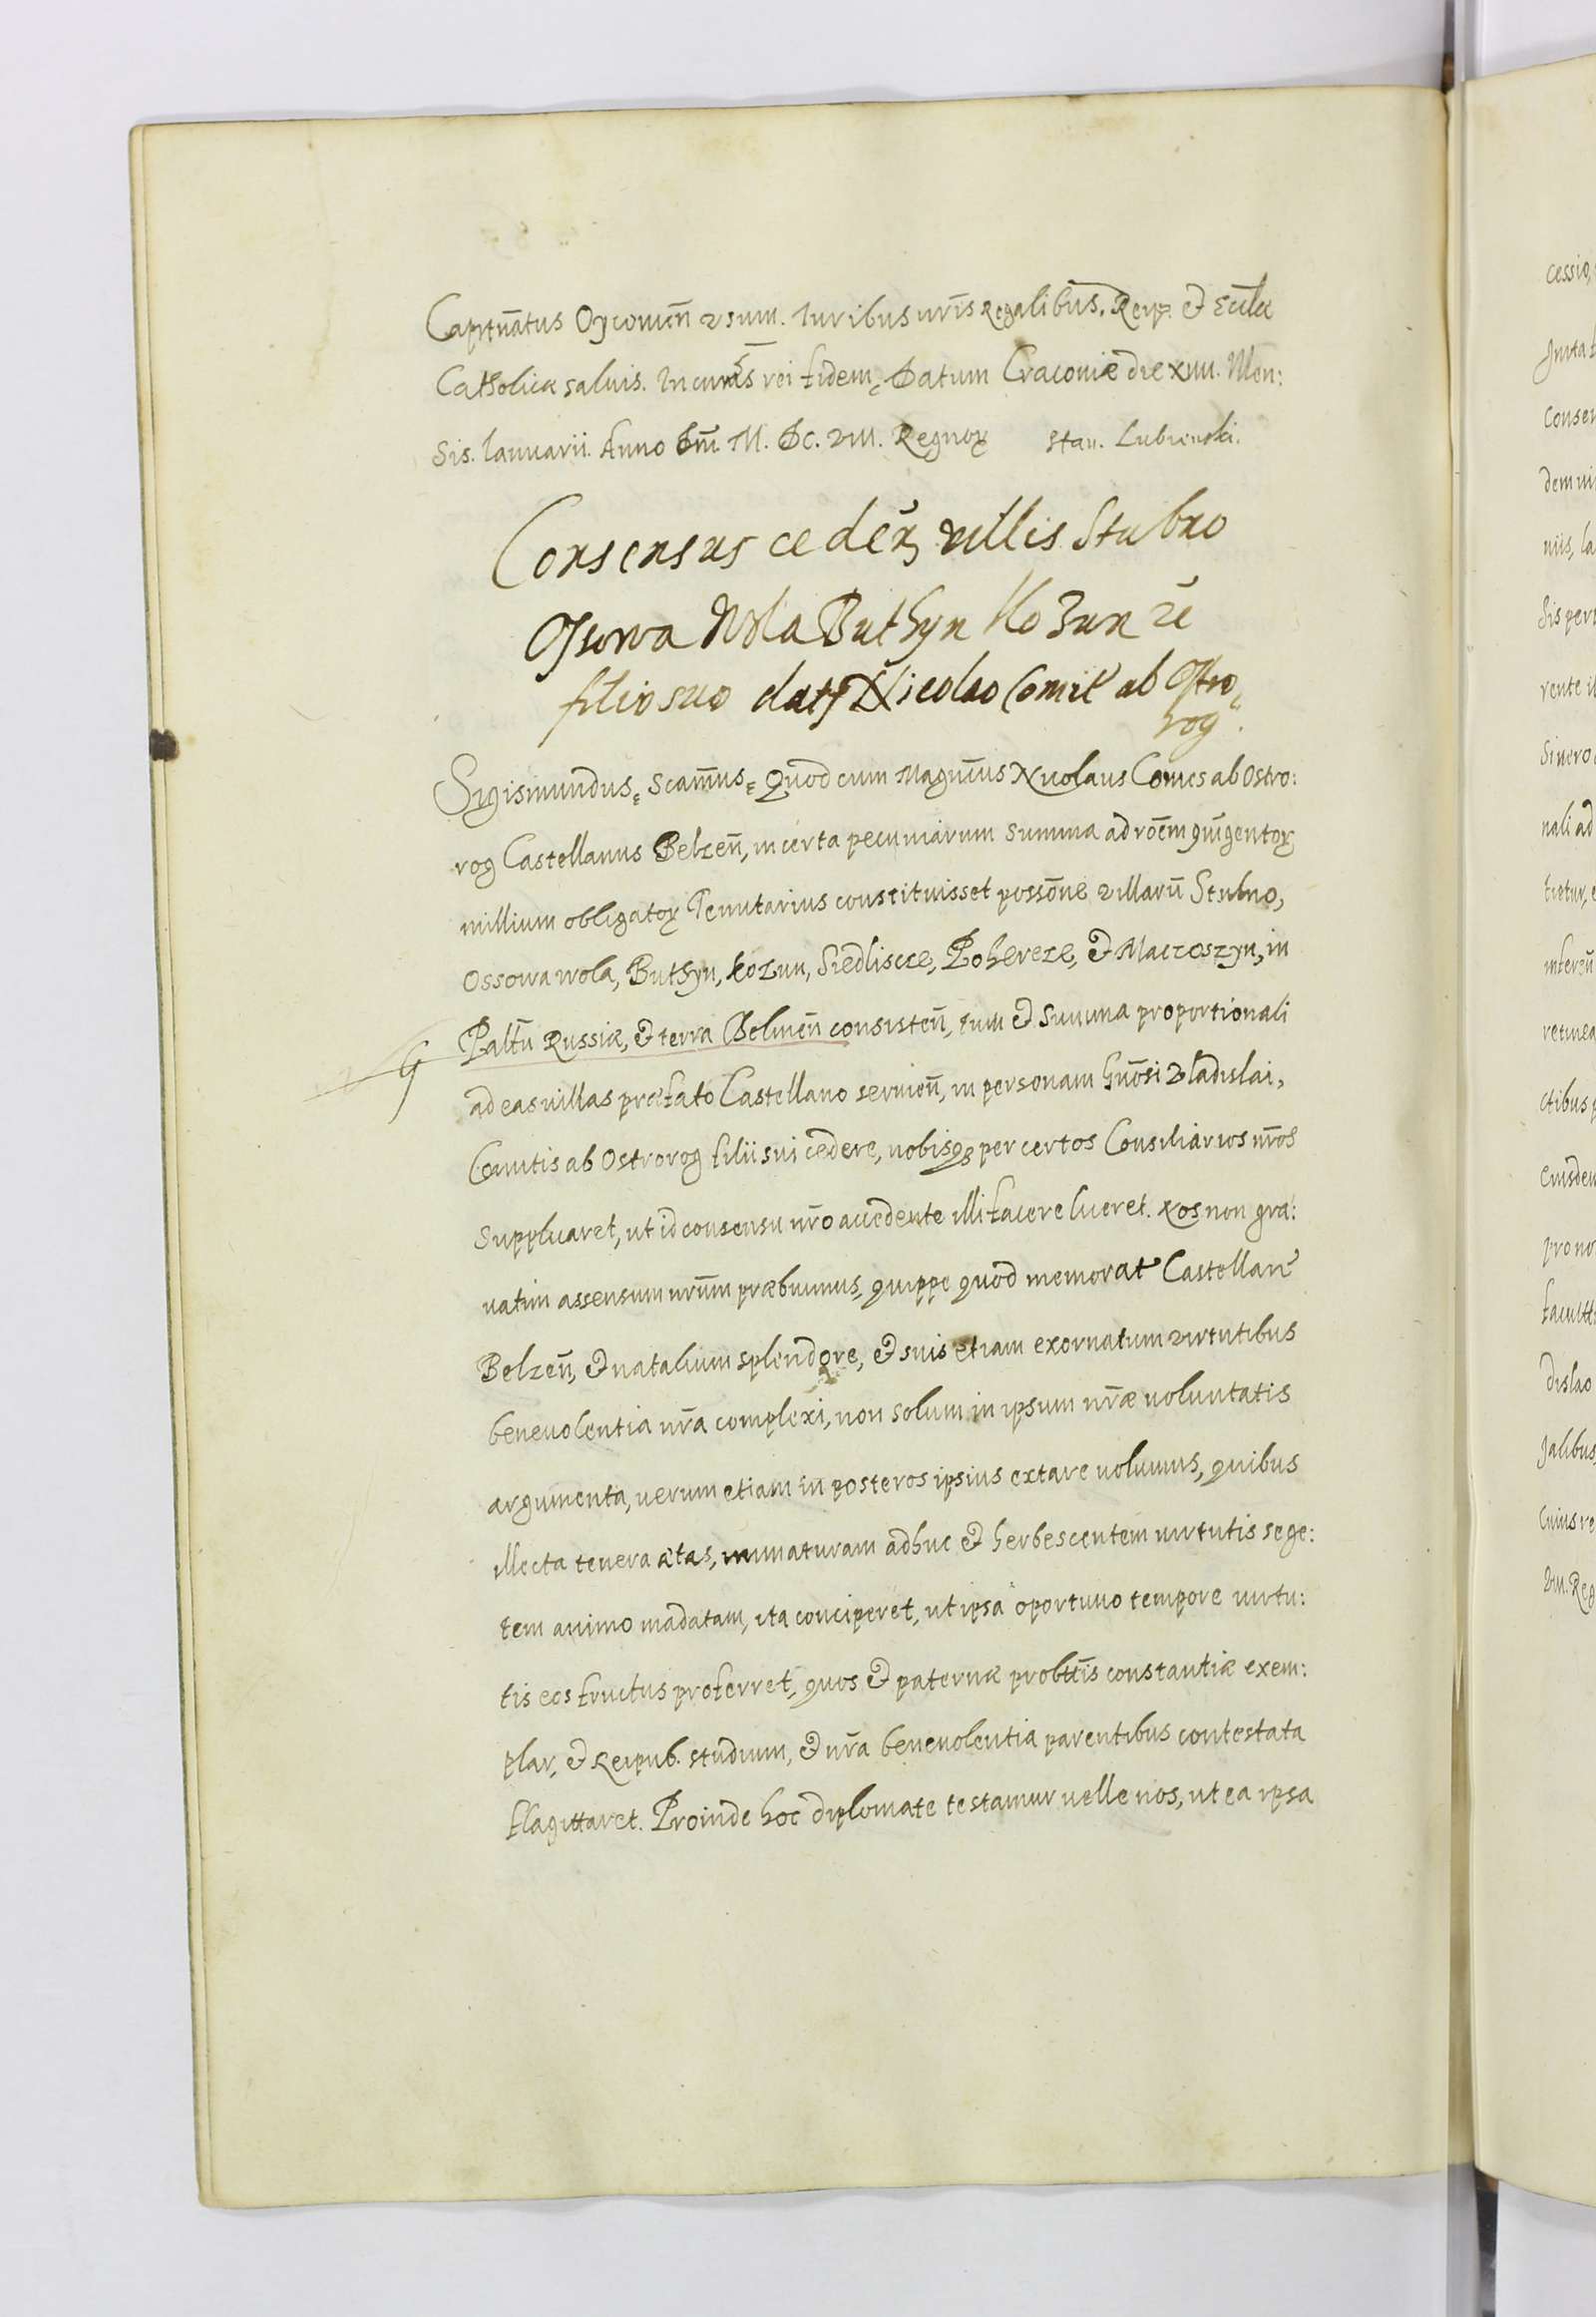 Captūatus Oyconień usum. Iuribus nr̄is Regalibus, Reip. & Eccłæ
Catholicæ saluis. In cuius rei fidem, Datum Cracoviæ die XIIII. Men:
sis. Ianuarii. Anno Dñi. M. DC. VIII. Regnoꝝ Stan. Lubienski.
Consensus ceden̄ villis Stubno
Ossowa Wola Buthyn Kozun &c
filio suo datꝰ Nicolao Comiti ab Ostro„
rog.
Sigismundus, Scam̄us, Quod cum Magn̄cus Nicolaus Comes ab Ostro:
rog Castellanus Belzen̄, in certa pecuniarum summa ad rōem quīngentoꝝ
millium obligatoꝝ Tenutarius constituisset possōne villarū Stubno,
Ossowa wola, Buthyn, Kozun, Siedliscze, Pohereze, & Maczoszyn, in
Palt̄u Russiæ, & terra Chelmen̄ consisten̄, tum & summa proportionali
G
ad eas villas præfato Castellano seruien̄, in personam Gn̄osi Vladislai,
Comitis ab Ostrorog filii sui cedere, nobisqꝫ per certos Consiliarios nr̄os
supplicaret, ut id consensu nr̄o accedente illi facere liceret. Nos non gra:
uatim assensum nr̄um præbuimus, quippe quod memoratꝰ Castellanꝰ
Belzen̄, & natalium splendore, & suis etiam exornatum virtutibus
beneuolentia nr̄a complexi, non solum in ipsum nr̄æ uoluntatis
argumenta, uerum etiam in posteros ipsius extare uolumus, quibus
illecta tenera ætas, immaturam adhuc & herbescentem uirtutis sege:
tem animo madatam, ita conciperet, ut ipsa oportuno tempore uirtu:
tis eos fructus proferret, quos & paternæ probtt̄is constantiæ exem:
plar, & Reipub. studium, & nr̄a beneuolentia parentibus contestata
flagittaret. Proinde hoc diplomate testamur uelle nos, ut ea ipsa